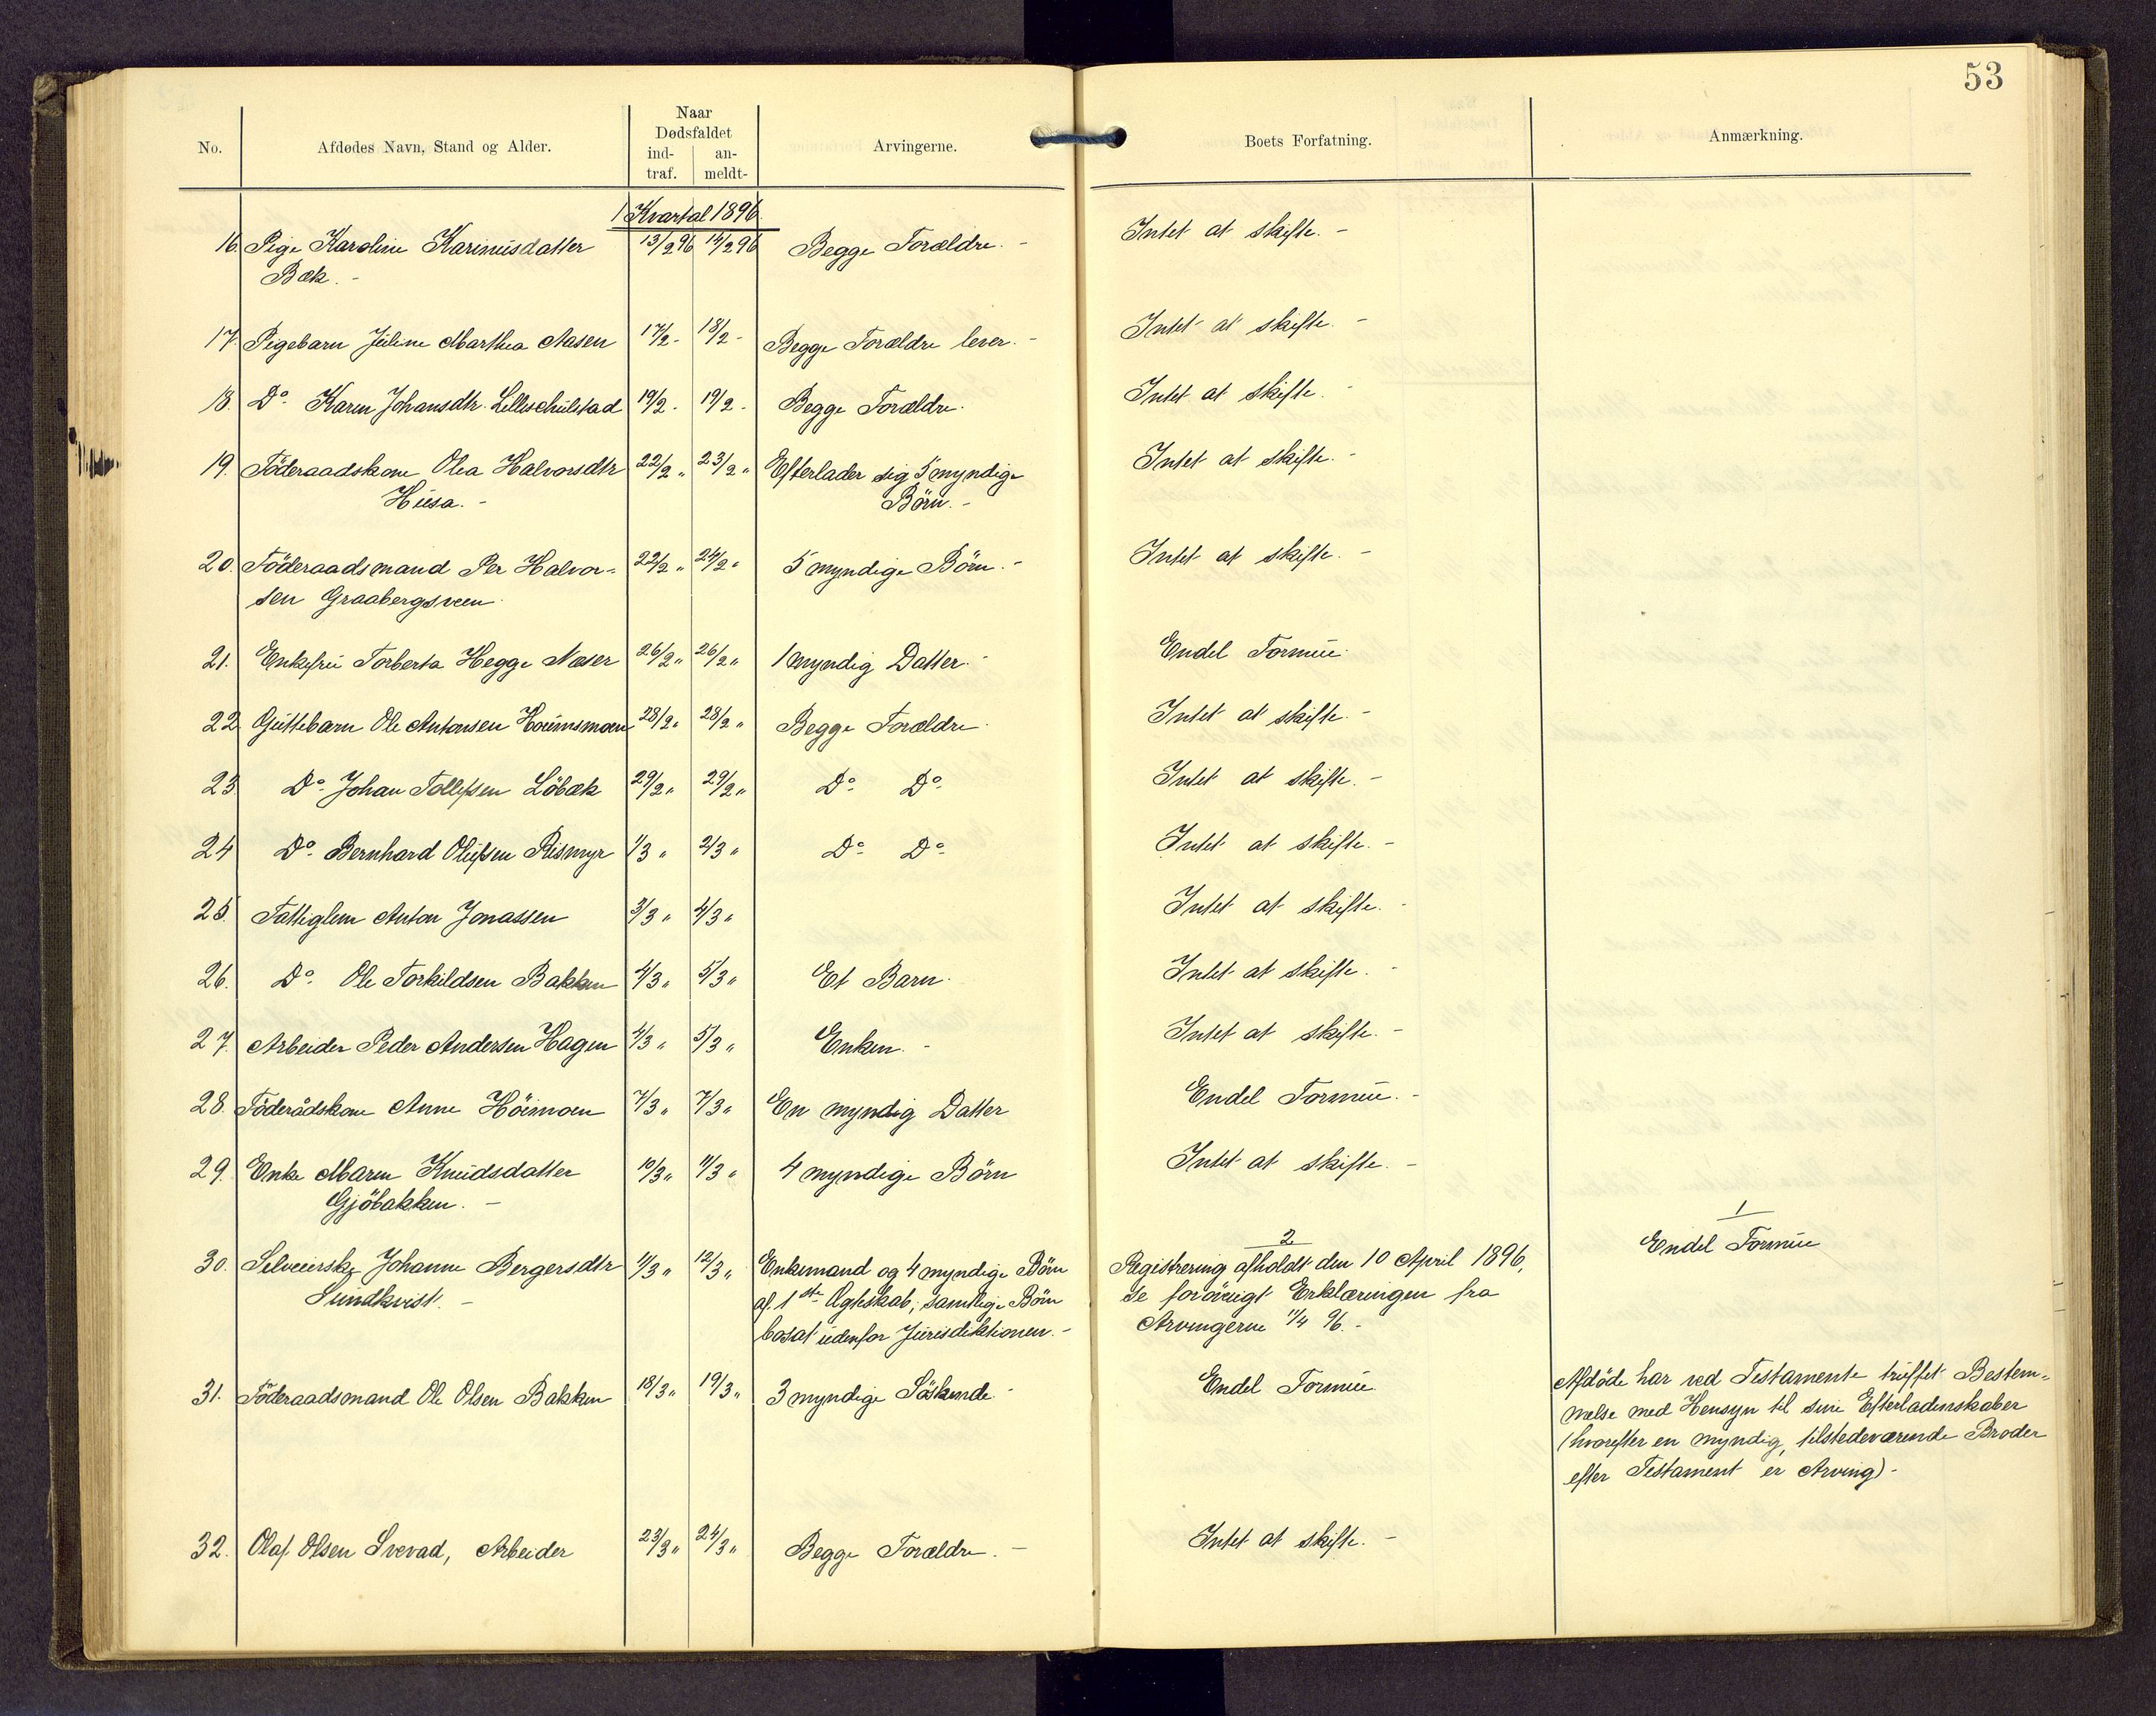 53
No. Afdødes Navn, Stand og Alder. Naar Dødsfaldet ind-traf. an-meldt- Arvingerne. Boets Forfatning. Anmærkning.
1 Kvartal 1896
16. Pige Karoline Karinusdatter 13/2 96 14/2 96 Begge Forældre. - Intet at skifte. -
Bæk. -
17. Pigebarn Juline Marthea Aasen 17/2 - 18/2 - Begge Forældre lever. - Intet at skifte. -
18. Do. Karen Johansdtr. Lilleschulstad 19/2 - 19/2 - Begge Forældre. Intet at skifte. -
19. Föderaadskone Olea Halvorsdtr 22/2 „ 23/2 „ Efterlader sig 5 myndige Intet at skifte. -
Husa. - Börn. -
20. Föderaadsmand Per Halvor- 22/2 „ 24/2 „ 5 myndige Börn. - Intet at skifte. -
sen Graabergsveen.
21. Enkefru Torberta Hegge Næser 26/2 „ 26/2 „ 1 myndig Datter. - Endel Formue.
22. Guttebarn Ole Antonsen Houmsmoen 28/2 „ 28/2 „ Begge Forældre. Intet at skifte. -
23 Do. Johan Tollefsen Löbæk 29/2 „ 29/2 „ Do. Do. Intet at skifte. -
24 Do. Bernhard Olufsen Rismyr 1/3 „ 2/3 „ Do. Do. Intet at skifte. -
25. Fattiglem Anton Jonassen 3/3 „ 4/3 „ Intet at skifte. -
26. Do. Ole Torkildsen Bakken 4/3 „ 5/3 „ Et Barn. Intet at skifte. -
27. Arbeider Peder Andersen Hagen 4/3 „ 5/3 „ Enken. - Intet at skifte. -
28. Föderådskone Anne Höimoen 7/3 „ 7/3 „ En myndig Datter Endel Formue. -
29. Enke Maren Knudsdatter 10/3 „ 11/3 „ 4 myndige Börn Intet at skifte. -
Gjöbakken. -
30. Selveierske Johanne Bergersdtr 11/3 „ 12/3 „ Enkemand og 4 myndige Börn
Sundkvist. - af 1ste Ægteskab; samtlige Börn
bosat udenfor Jurisdiktionen. -
2
Registrering afholdt den 10 April 1896,
se forövrigt Erklæringen fra
Arvingerne 11/4 96. -
1
Endel Formue
31. Föderaadsmand Ole Olsen Bakken 18/3 „ 19/3 „ 3 myndige Söskende. - Endel Formue.
Afdöde har ved Testamente truffet Bestem-
melse med Hensyn til sine Efterladenskaber
(hvorefter en myndig, tilstedeværende Broder
efter Testament er Arving) -
32. Olaf Olsen Sverad, Arbeider 23/3 „ 24/3 „ Begge Forældre. - Intet at skifte. -